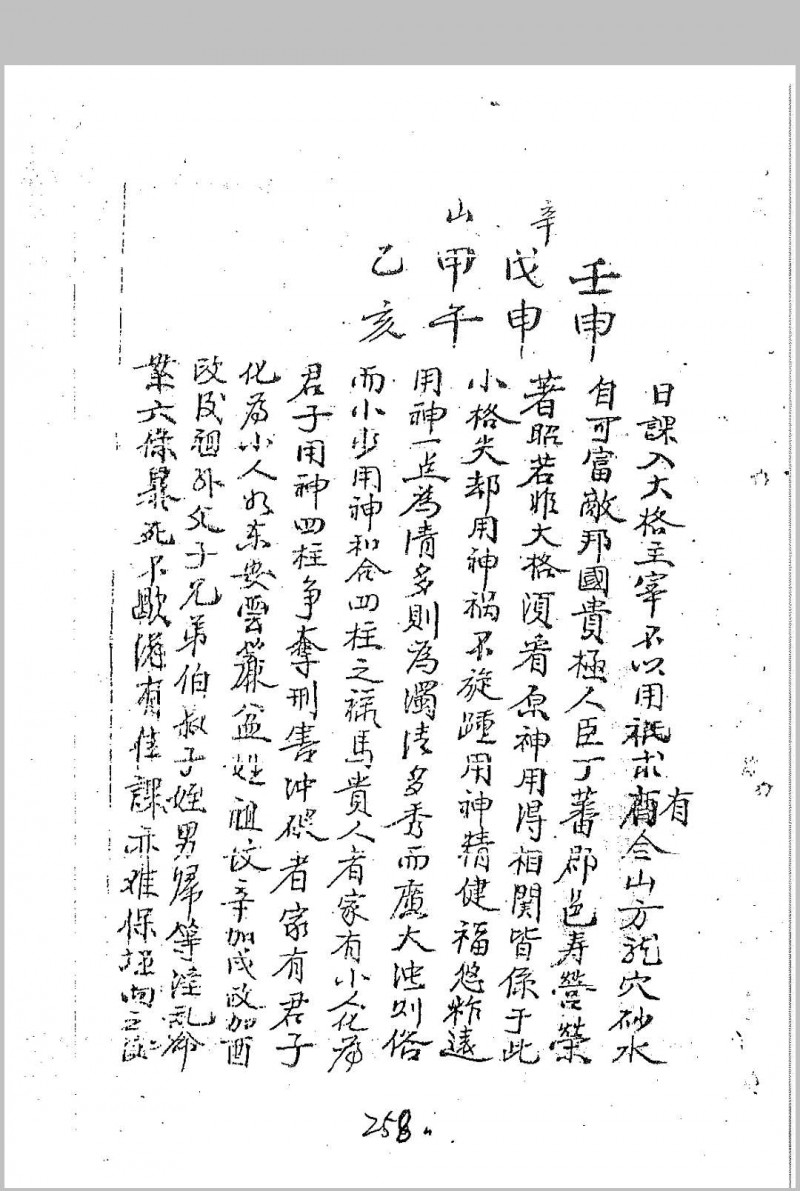 壬申
辛
戊申
山
甲午
乙亥
日課入大格主宰不以用祗求有合山方龍穴砂水
自可富敵邦國貴極人臣丁蕃郡邑寿營榮
著昭若非大格須看原神用得相関皆係于此
小格失却用神祸不旋踵用神精健福悠柞遠
用神一点為清多則為濁清多秀而廣大浊则俗
而小少用神和合四柱之祿馬貴人者家有小人化為
君子用神四柱争奪刑害冲破者家有君子
化為小人如东安雲簾盆姓祖坟辛加戌改加酉
改皮廻外父子兄弟伯叔子姪男婦等淫乱命
業六條暴死不歇後有佳課亦难保
258